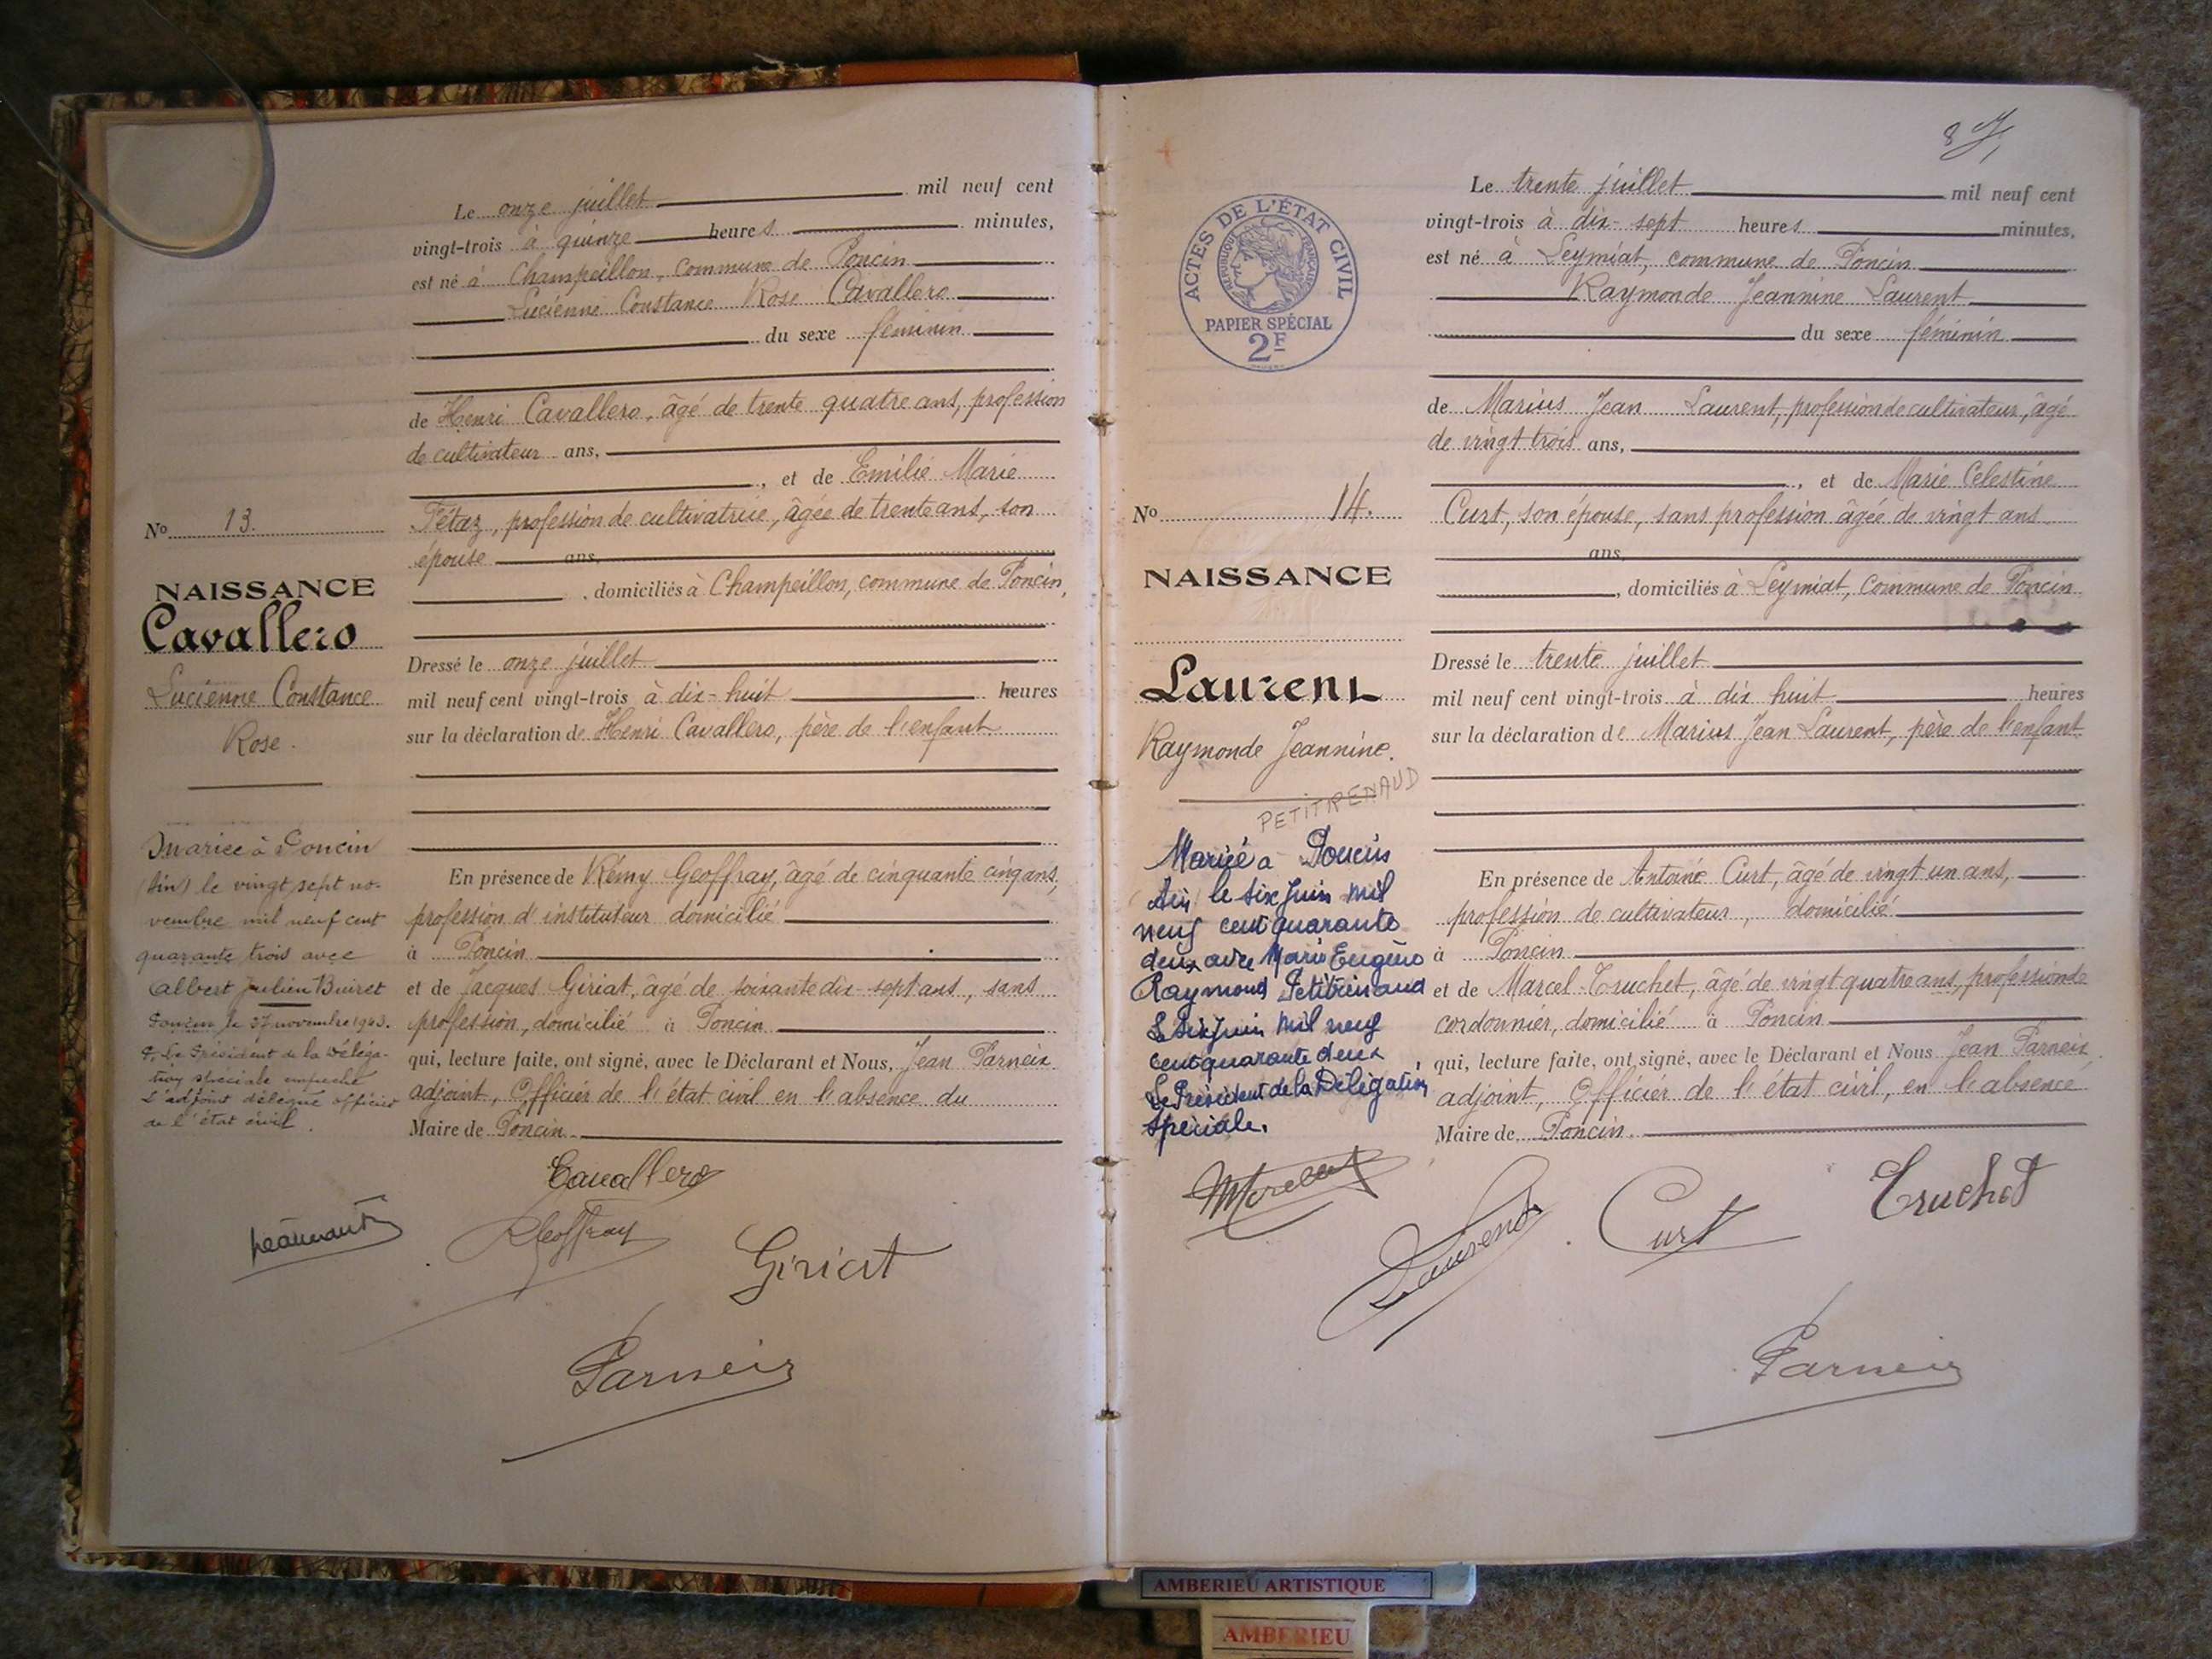 Le onze juillet mil neuf cent
vingt-trois à quinze heures minutes,
est né à Champeillon, commune de Poncin
Lucienne Constance Rose Cavallero
du sexe féminin
de Henri Cavallero, âgé de trente quatre ans, profession
de cultivateur ans,
, et de Emilie Marie
Tétaz, profession de cultivatrice, âgée de trente ans, son
épouse ans,
, domiciliés à Champeillon, commune de Poncin,
Dressé le onze juillet
mil neuf cent vingt-trois à dix-huit heures
sur la déclaration de Henri Cavallero, père de l'enfant
En présence de Rémy Geoffray, âgé de cinquante cinq ans,
profession d'instituteur domicilié
à Poncin
et de Jacques Giriat, âgé de soixante dix-sept ans, sans
profession, domicilié à Poncin
qui, lecture faite, ont signé, avec le Déclarant et Nous, Jean Parneix
adjoint, Officier de l'état civil en l'absence du
Maire de Poncin
No 13.
NAISSANCE
Cavallero
Lucienne Constance
Rose.
Mariée à Poncin
(Ain) le vingt sept no-
vembre mil neuf cent
quarante trois avec
Albert Julien Buiret
Poncin le 27 novembre 1943.
P. Le Président de la Déléga-
tion spéciale empêché
L'adjoint délégué officier
de l'état civil.
Cavallero
RGeoffray
Giriat
Parneix
8
Le trente juillet mil neuf cent
vingt-trois à dix-sept heures minutes,
est né à Leymiat, commune de Poncin
Raymonde Jeannine Laurent
du sexe féminin
de Marius Jean Laurent, profession de cultivateur, âgé
de vingt trois ans,
, et de Marie Celestine
Curt, son épouse, sans profession âgée de vingt ans
ans,
, domiciliés à Leymiat, commune de Poncin
Dressé le trente juillet
mil neuf cent vingt-trois à dix huit heures
sur la déclaration de Marius Jean Laurent, père de l'enfant
En présence de Antoine Curt, âgé de vingt un ans,
profession de cultivateur, domicilié
à Poncin
et de Marcel Truchet, âgé de vingt quatre ans, profession de
cordonnier, domicilié à Poncin
qui, lecture faite, ont signé, avec le Déclarant et Nous Jean Parneix
adjoint, Officier de l'état civil, en l'absence
Maire de Poncin
ACTES DE L'ÉTAT CIVIL
RÉPUBLIQUE FRANÇAISE
PAPIER SPÉCIAL
2F
No 14.
NAISSANCE
Laurent
Raymonde Jeannine.
PETITRENAUD
Mariée à Poncin
Ain le six Juin mil
neuf cent quarante
deux avec Marie Eugène
Raymond Petitrenaud
Le six Juin mil neuf
cent quarante deux
Le Président de la Délégation
Spéciale.
Laurent
Curt
Truchet
Parneix
AMBERIEU ARTISTIQUE
AMBERIEU